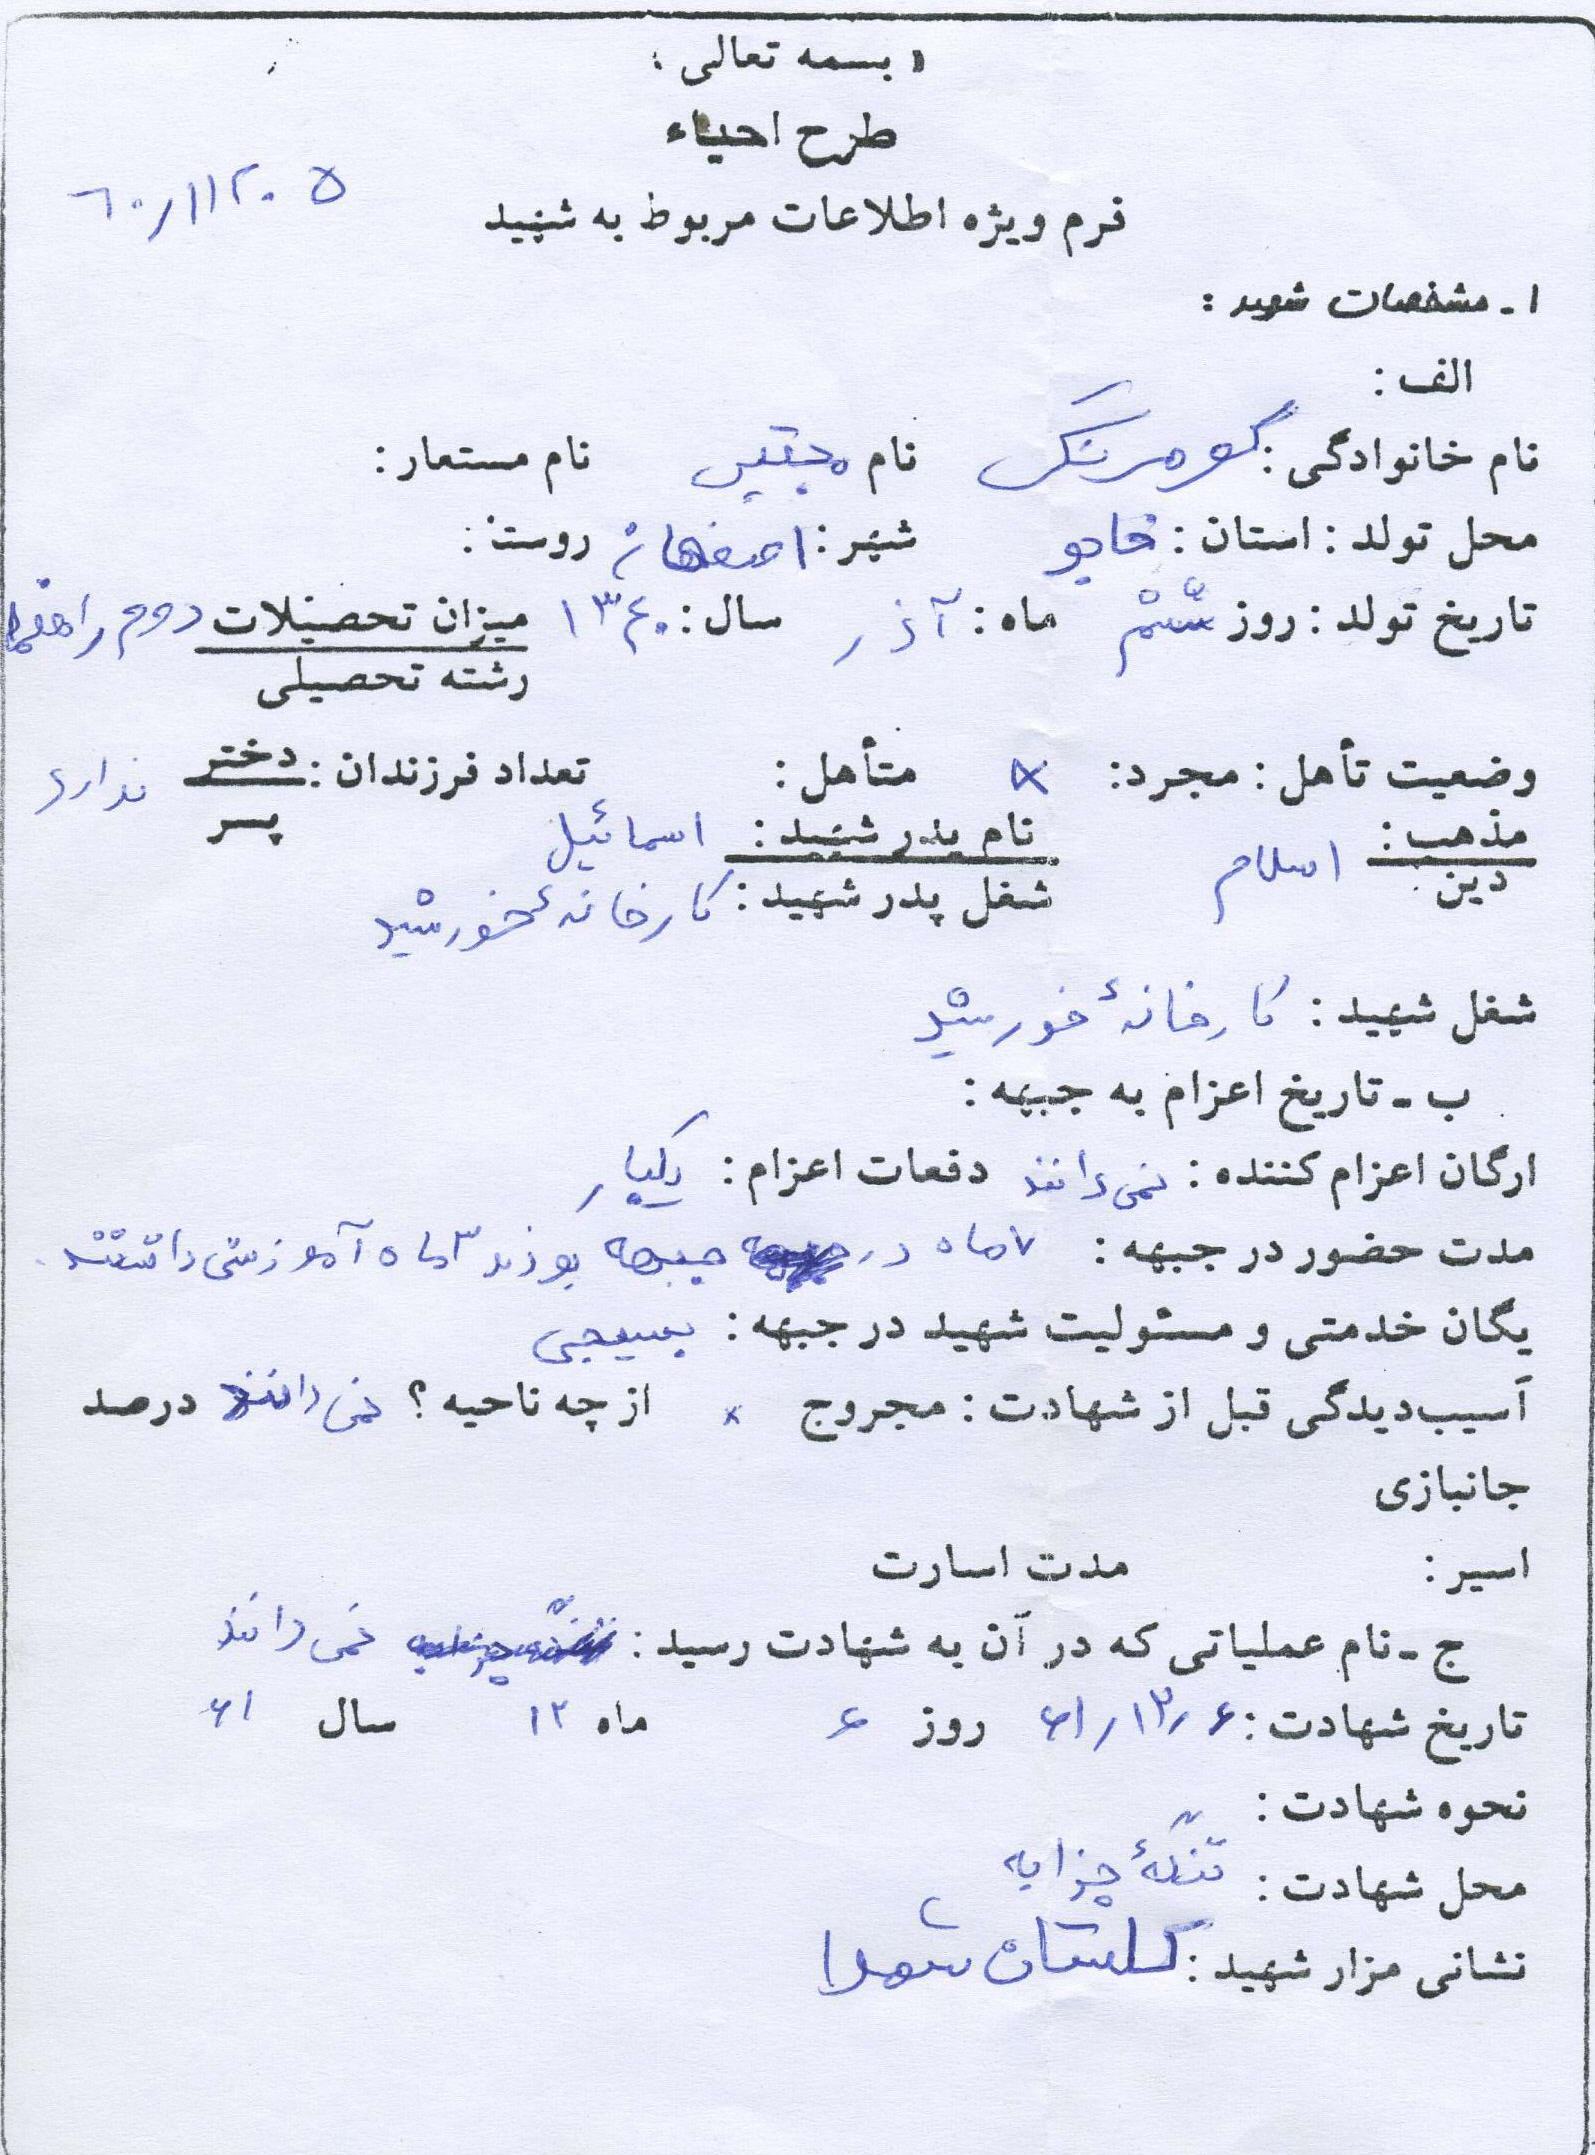 « بسمه تعالی »
طرح احیاء
۶۰/۱۱۲۰۵
فرم ویژه اطلاعات مربوط به شهید
۱ـ مشخصات شهید :
الف :
نام خانوادگی : گوهررنگ نام مجتبی نام مستعار :
محل تولد : استان : خاجو شهر : اصفهان روستا :
تاریخ تولد : روز ششم ماه : آذر سال : ۱۳۴۰ میزان تحصیلات دوم راهنما
رشته تحصیلی
وضعیت تأهل : مجرد : × متأهل : تعداد فرزندان : دختر ندارد
پسر
مذهب : اسلام نام پدر شهید : اسمائیل
دین شغل پدر شهید : کارخانهٔ خورشید
شغل شهید : کارخانهٔ خورشید
ب ـ تاریخ اعزام به جبهه :
ارگان اعزام کننده : نمی‌دانند دفعات اعزام : یکبار
مدت حضور در جبهه : ۷ماه در جبهه بودند ۳ماه آموزشی داشتند.
یگان خدمتی و مسئولیت شهید در جبهه : بسیجی
آسیب‌دیدگی قبل از شهادت : مجروح × از چه ناحیه ؟ نمی‌دانند درصد
جانبازی
اسیر : مدت اسارت
ج ـ نام عملیاتی که در آن به شهادت رسید : نمی‌دانند
تاریخ شهادت : ۶۱/۱۲/۶ روز ۶ ماه ۱۲ سال ۶۱
نحوه شهادت :
محل شهادت : تنگهٔ چزابه
نشانی مزار شهید : گلستان شهدا